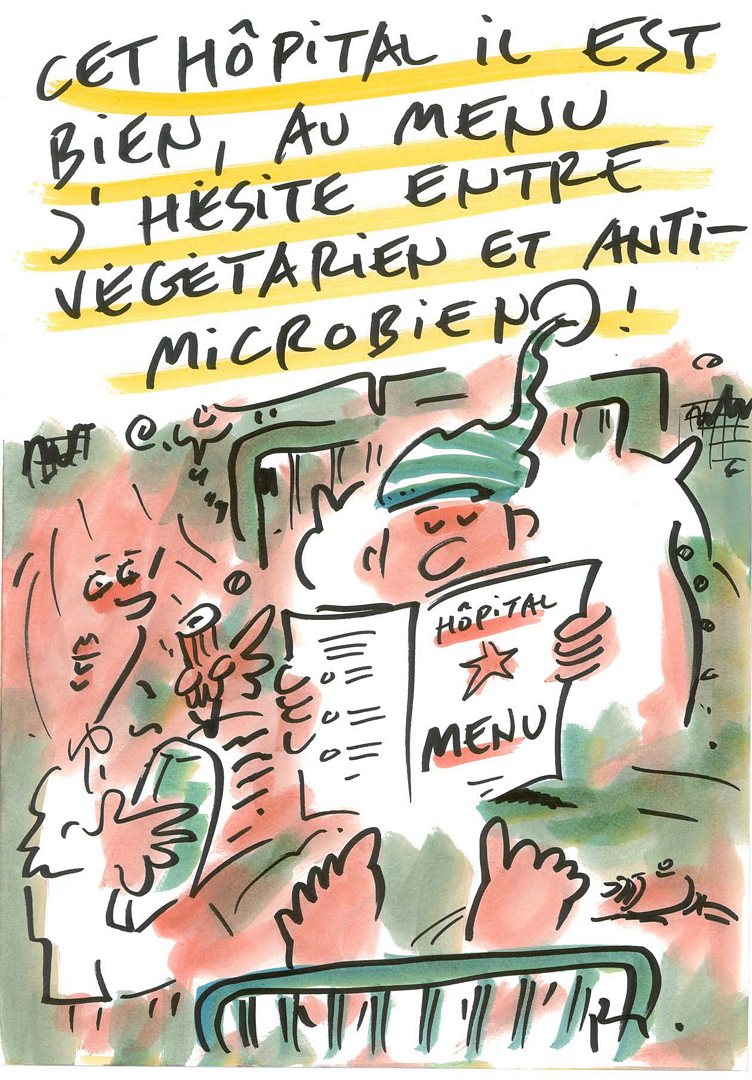 CET HÔPITAL IL EST
BIEN, AU MENU
J'HÉSITE ENTRE
VÉGÉTARIEN ET ANTI-
MICROBIEN !
HÔPITAL
MENU